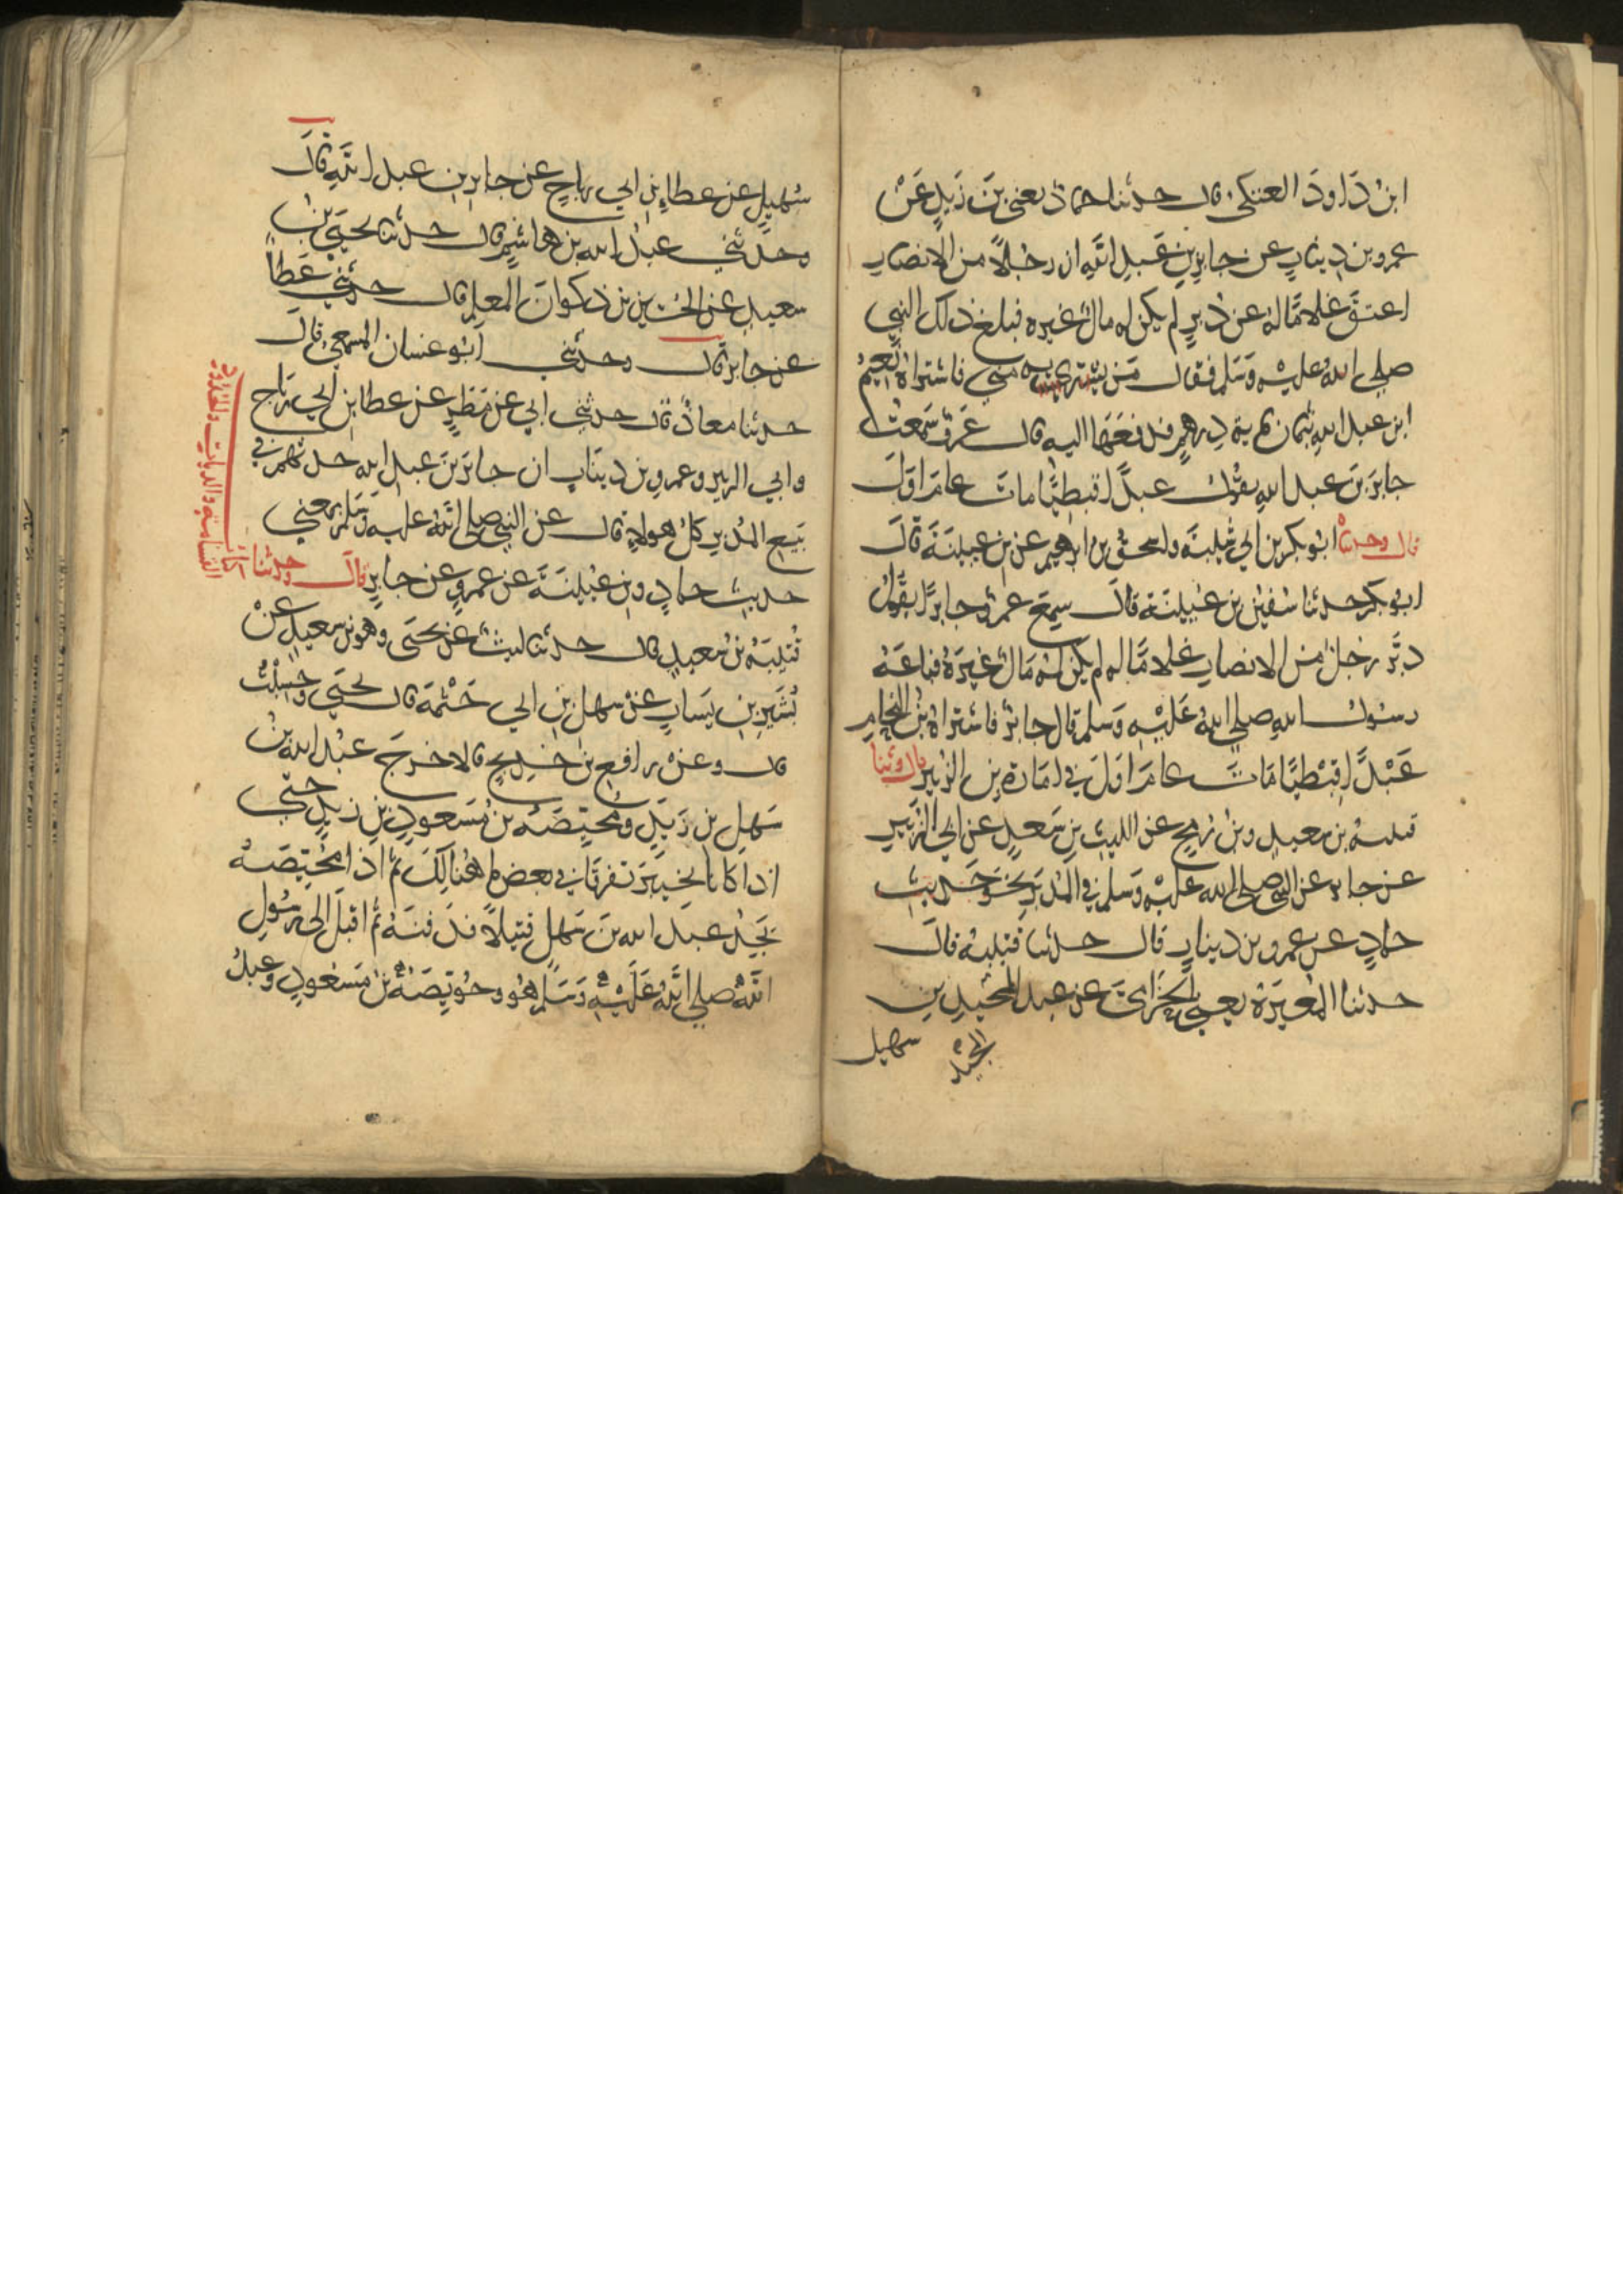 ابْنُ دَاودَ العتكي قال حدثنا حمادٌ يعني بنَ زَيدٍ عَنْ
عمرو بن دينارٍ عن جابرِ بنِ عَبدِ اللَّهِ ان رجُلاً من الانصارِ
اعتقَ غلامًا لهُ عن دُبرٍ لم يكن له مالٌ غيره فبلغ ذلك النبي
صلى اللهُ عليْهِ وَسَلم فقال مَن يشتريه مني فاشتراهُ نُعيمُ
ابن عبد اللهِ بثمان مِية دِرهمٍ فدفعَهَا اليه قال عَمرٌو سَمعتُ
جابرَ بنَ عبد اللهِ يقُول عبدًا قبطيًّا ماتَ عامَ اوّلَ
قال وحدثناه ابُو بكر بن ابي شَيبَة واسحقُ بن ابرهيم عن بن عيينَةَ قالَ
ابُو بكر حدثنا سُفين بن عُيينَة قالَ سِمعَ عمرٌو جابرًا يقُولُ
دبَّرَ رجلٌ من الانصارِ غلامًا له لم يكن لهُ مَالٌ غيرَهُ فباعَهُ
رسُولُ اللهِ صلى اللهُ عَليْهِ وَسلم قال جابرٌ فاشتراهُ بْنُ النحامِ
عَبْدًا قِبْطيًّا مَاتَ عامَ اوّلَ في امَارة بن الزبير قال وثنا
قتيبةُ بن سعيدٍ وبنُ رُمحٍ عن الليثِ بنِ سَعدٍ عن ابي الزبَيرِ
عن جابرٍ عن النبي صلى الله عليْه وَسلم في المُدبَّرِ نحوَ حَديثِ
حمادٍ عن عمرو بن دينارٍ قال حدثنا قتيبةُ قالَ
حدثنا المُغيرَة يعني الحِزَامِيَّ عن عبد المجيدِ بنِ
المجيد
سهيل
سُهيلٍ عن عطاءِ بنِ ابي رباحٍ عن جابرِ بنِ عبد اللَّهِ قالَ
وحدَّثني عبدُ الله بن هاشمٍ قال حدثنا يحيَى بْنُ
سعيدٍ عن الحُسين بن ذكوانَ المعلمِ قال حدثني عَطاءٌ
عن جابر قال وحدثني ابُو غسان المِسمعيُّ قالَ
حدثنا معاذٌ قال حدثني ابي عن مَطَرٍ عن عطا بن ابي رَباحٍ
وابي الزبيرِ وعمرو بن دينَارٍ ان جابرَ بنَ عبدِ الله حدثهم في
بَيعِ المُدبرِ كلُّ هولاءِ قال عن النبي صلى اللَّهُ عليه وَسَلم بمعني
حديثِ حمادٍ وبن عُيينَةَ عن عمرٍو عن جابرٍ قالَ وحدثنا
كتاب القسامة والديات والحدود
قُتيبَةُ بنُ سَعيدٍ قال حدثنا ليثٌ عن يحيَى وهو بن سعيدٍ عَنْ
بُشَيرِ بنِ يَسَارٍ عنْ سهل بنِ ابي حَثْمةَ قال يحيَى وَحسِبْتُ
قال وعنْ رافع بن خَديجٍ قالا خرجَ عبْدُ الله بنُ
سَهلِ بنِ زيدٍ ومُحَيّصَةُ بنُ مَسعودِ بنِ زيدٍ حتى
اذا كانا بخيبَرَ تفرقَا في بعض ما هُنالكَ ثم اذا مُحيّصَةُ
يَجِدُ عبدَ الله بنَ سَهلٍ قتيلاً فدَفنَهُ ثم اقبَلَ الى رسُولِ
اللَّهِ صلى اللَّهُ عَلَيْهِ وَسَلم هُو وحُوَيّصَةُ بنُ مَسْعُودٍ وعبدُ